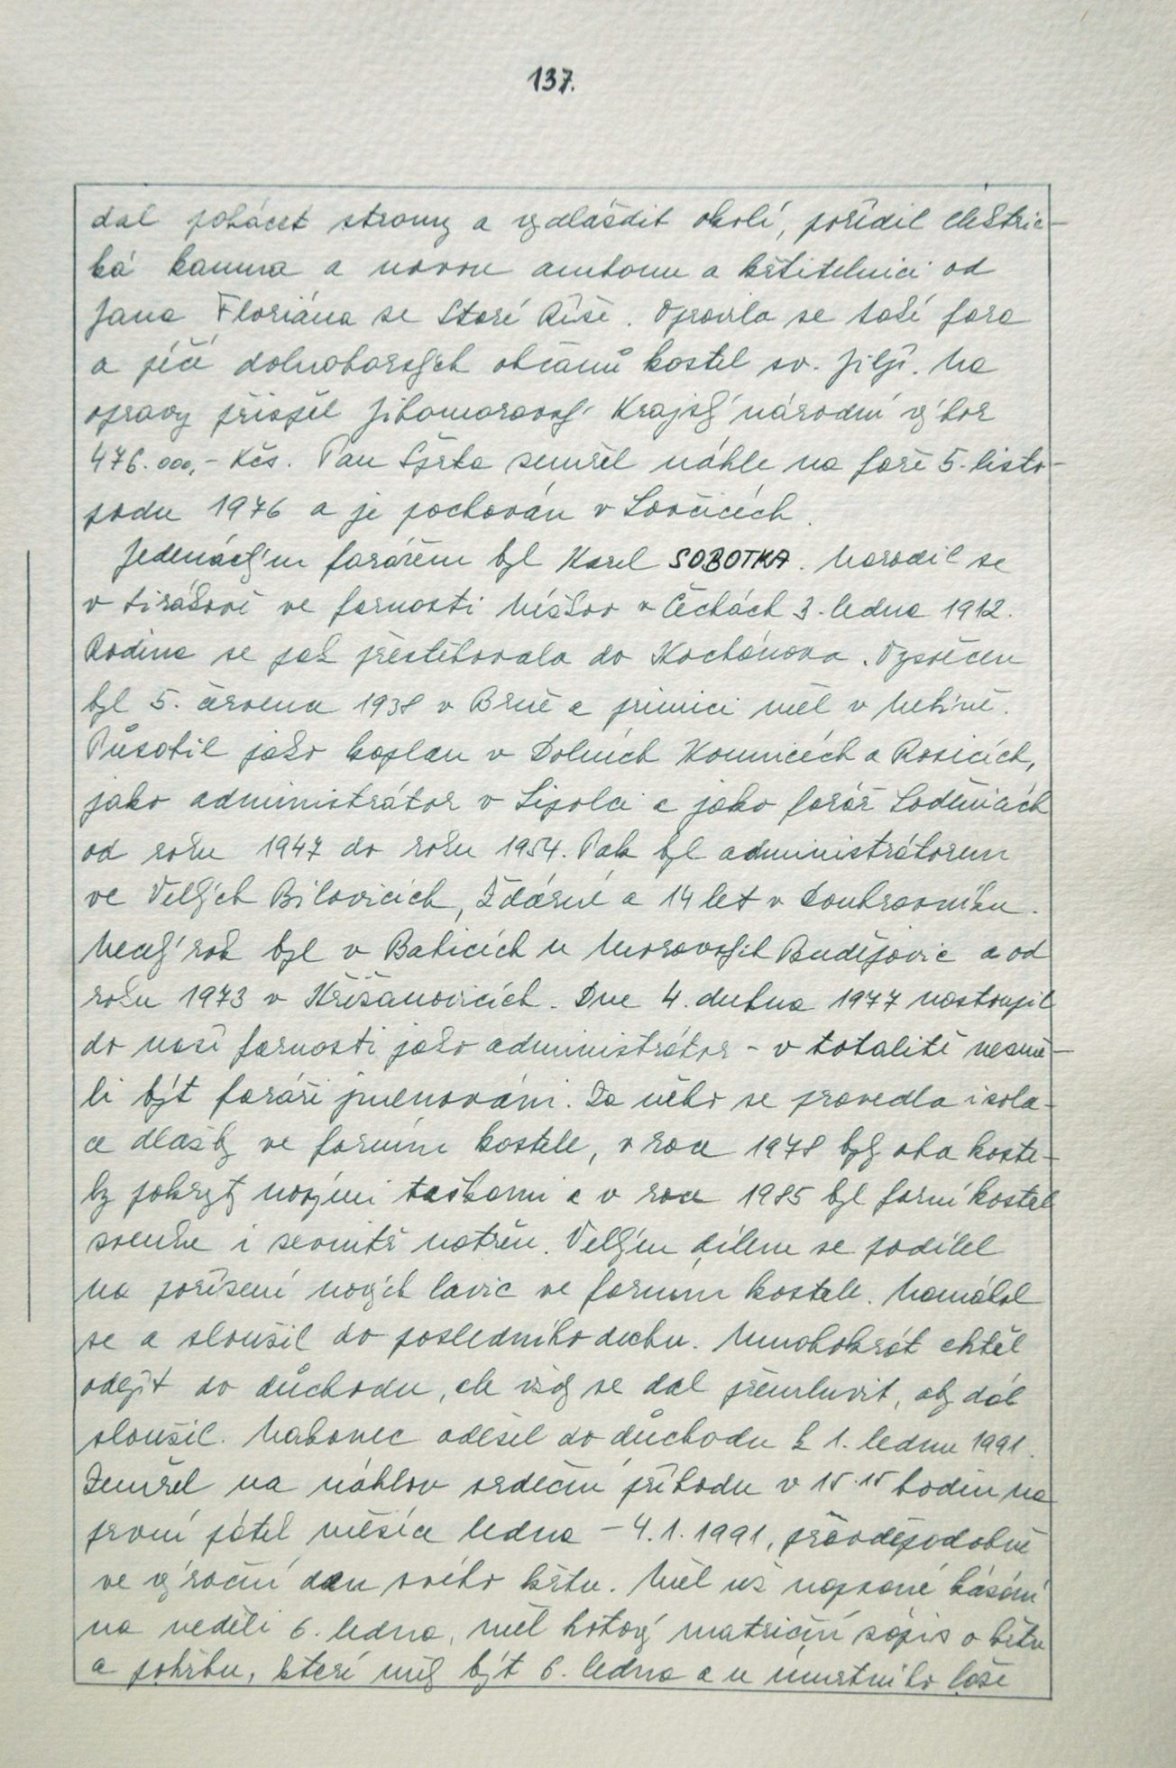 137.
dal pokácet stromy a vydláždit okolí, pořídil elektric-
ká kamna a novou ambonu a křtitelnici od
Jana Floriána ze Staré Říše. Opravila se také fara
a péčí dolnoborských občanů kostel sv. Jiljí. Na
opravy přispěl Jihomoravský Krajský národní výbor
476.000,- Kčs. Pan Šprta zemřel náhle na faře 5. listo-
padu 1976 a je pochován v Lovčicích.
Jedenáctým farářem byl Karel SOBOTKA. Narodil se
v ve farnosti v Čechách 3. ledna 1912.
Rodina se pak přestěhovala do Kochánova. Vysvěcen
byl 5. července 1938 v Brně a primici měl v Netíně.
Působil jako kaplan v Dolních Kounicích a Rosicích,
jako administrátor v Lipolci a jako farář Loděnicích
od roku 1947 do roku 1954. Pak byl administrátorem
ve Velkých Bílovicích, Ždárné a 14 let v Doubravníku.
Necelý rok byl v Babicích u Moravských Budějovic a od
roku 1973 v Křižanovicích. Dne 4. dubna 1977 nastoupil
do naší farnosti jako administrátor - v totalitě nesmě-
li být faráři jmenováni. Za něho se provedla izola-
ce dlažby ve farním kostele, v roce 1978 byly oba koste-
ly pokryty novými taškami a v roce 1985 byl farní kostel
zvenku i zevnitř natřen. Velkým dílem se podílel
na pořízení nových lavic ve farním kostele. Namáhal
se a sloužil do posledního dechu. Mnohokrát chtěl
odejít do důchodu, ale vždy se dal přemluvit, aby dál
sloužil. Nakonec odešel do důchodu k 1. lednu 1991.
Zemřel na náhlou srdeční příhodu v 15.15 hodin na
první pátek měsíce ledna - 4.1.1991, pravděpodobně
ve výroční den svého křtu. Měl už napsané kázání
na neděli 6. ledna, měl hotový matriční zápis o křtu
a pohřbu, které měly být 6. ledna a u úmrtního lože